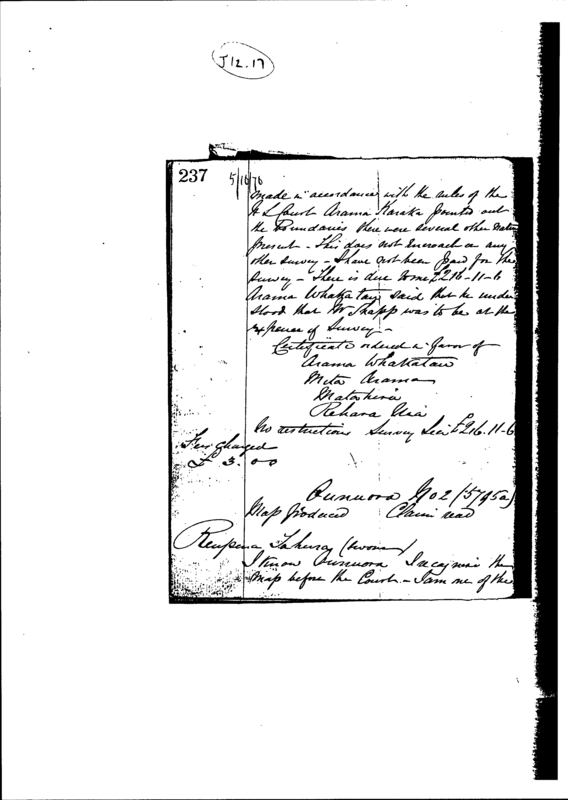 J12.17
237
5/10/76
made in accordance with the rules of the
N L Court Arama Karaka pointed out
the Boundaries there were several other natives
present - This does not encroach on any
other survey - I have not been paid for the
survey - There is due to me £216-11-6
Arama Whakatau said that he under
stood that Mr was to be at the
expence of Survey -
Certificate ordered in favor of
Arama Whakatau
Meta Arama
Matahira
No restrictions Survey Lien £216.11-6
Fees charged
£ 3.0 0
No 2
Map produced Claim read
(sworn)
I know I recognise the
Map before the Court - I am one of the